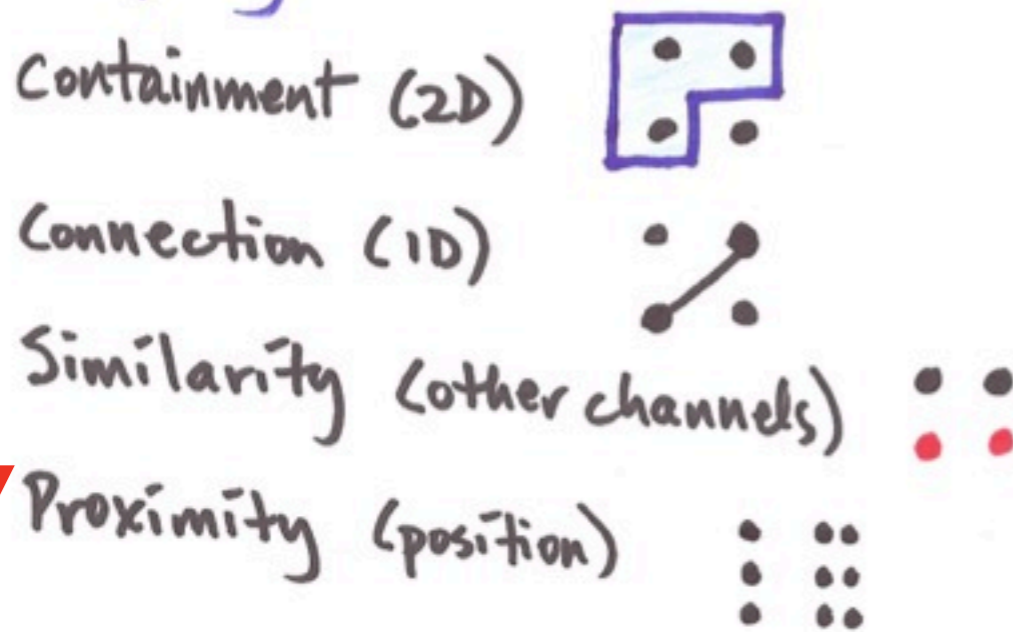 Containment (2D)
Connection (1D)
Similarity (other channels)
Proximity (position)